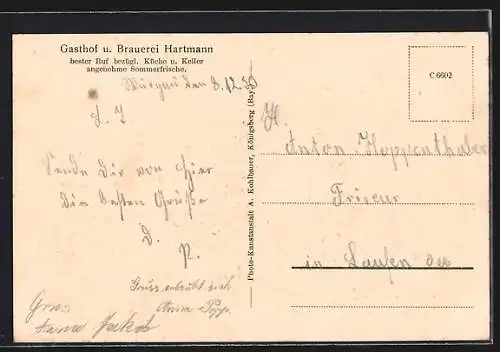 Gasthof u. Brauerei Hartmann
bester Ruf bezügl. Küche u. Keller
angenehme Sommerfrische.
Würgau den 8.12.33
L. J.
Sende Dir von Hier
die besten Grüße
D.
R.
Gruss erlaubt sich
Anna Popp.
Gruss
Jakob
Photo-Kunstanstalt A. Kohlbauer, Königsberg (Bay.)
C 6602
H.
Anton Hoppenthaler
Friseur
in Laufen